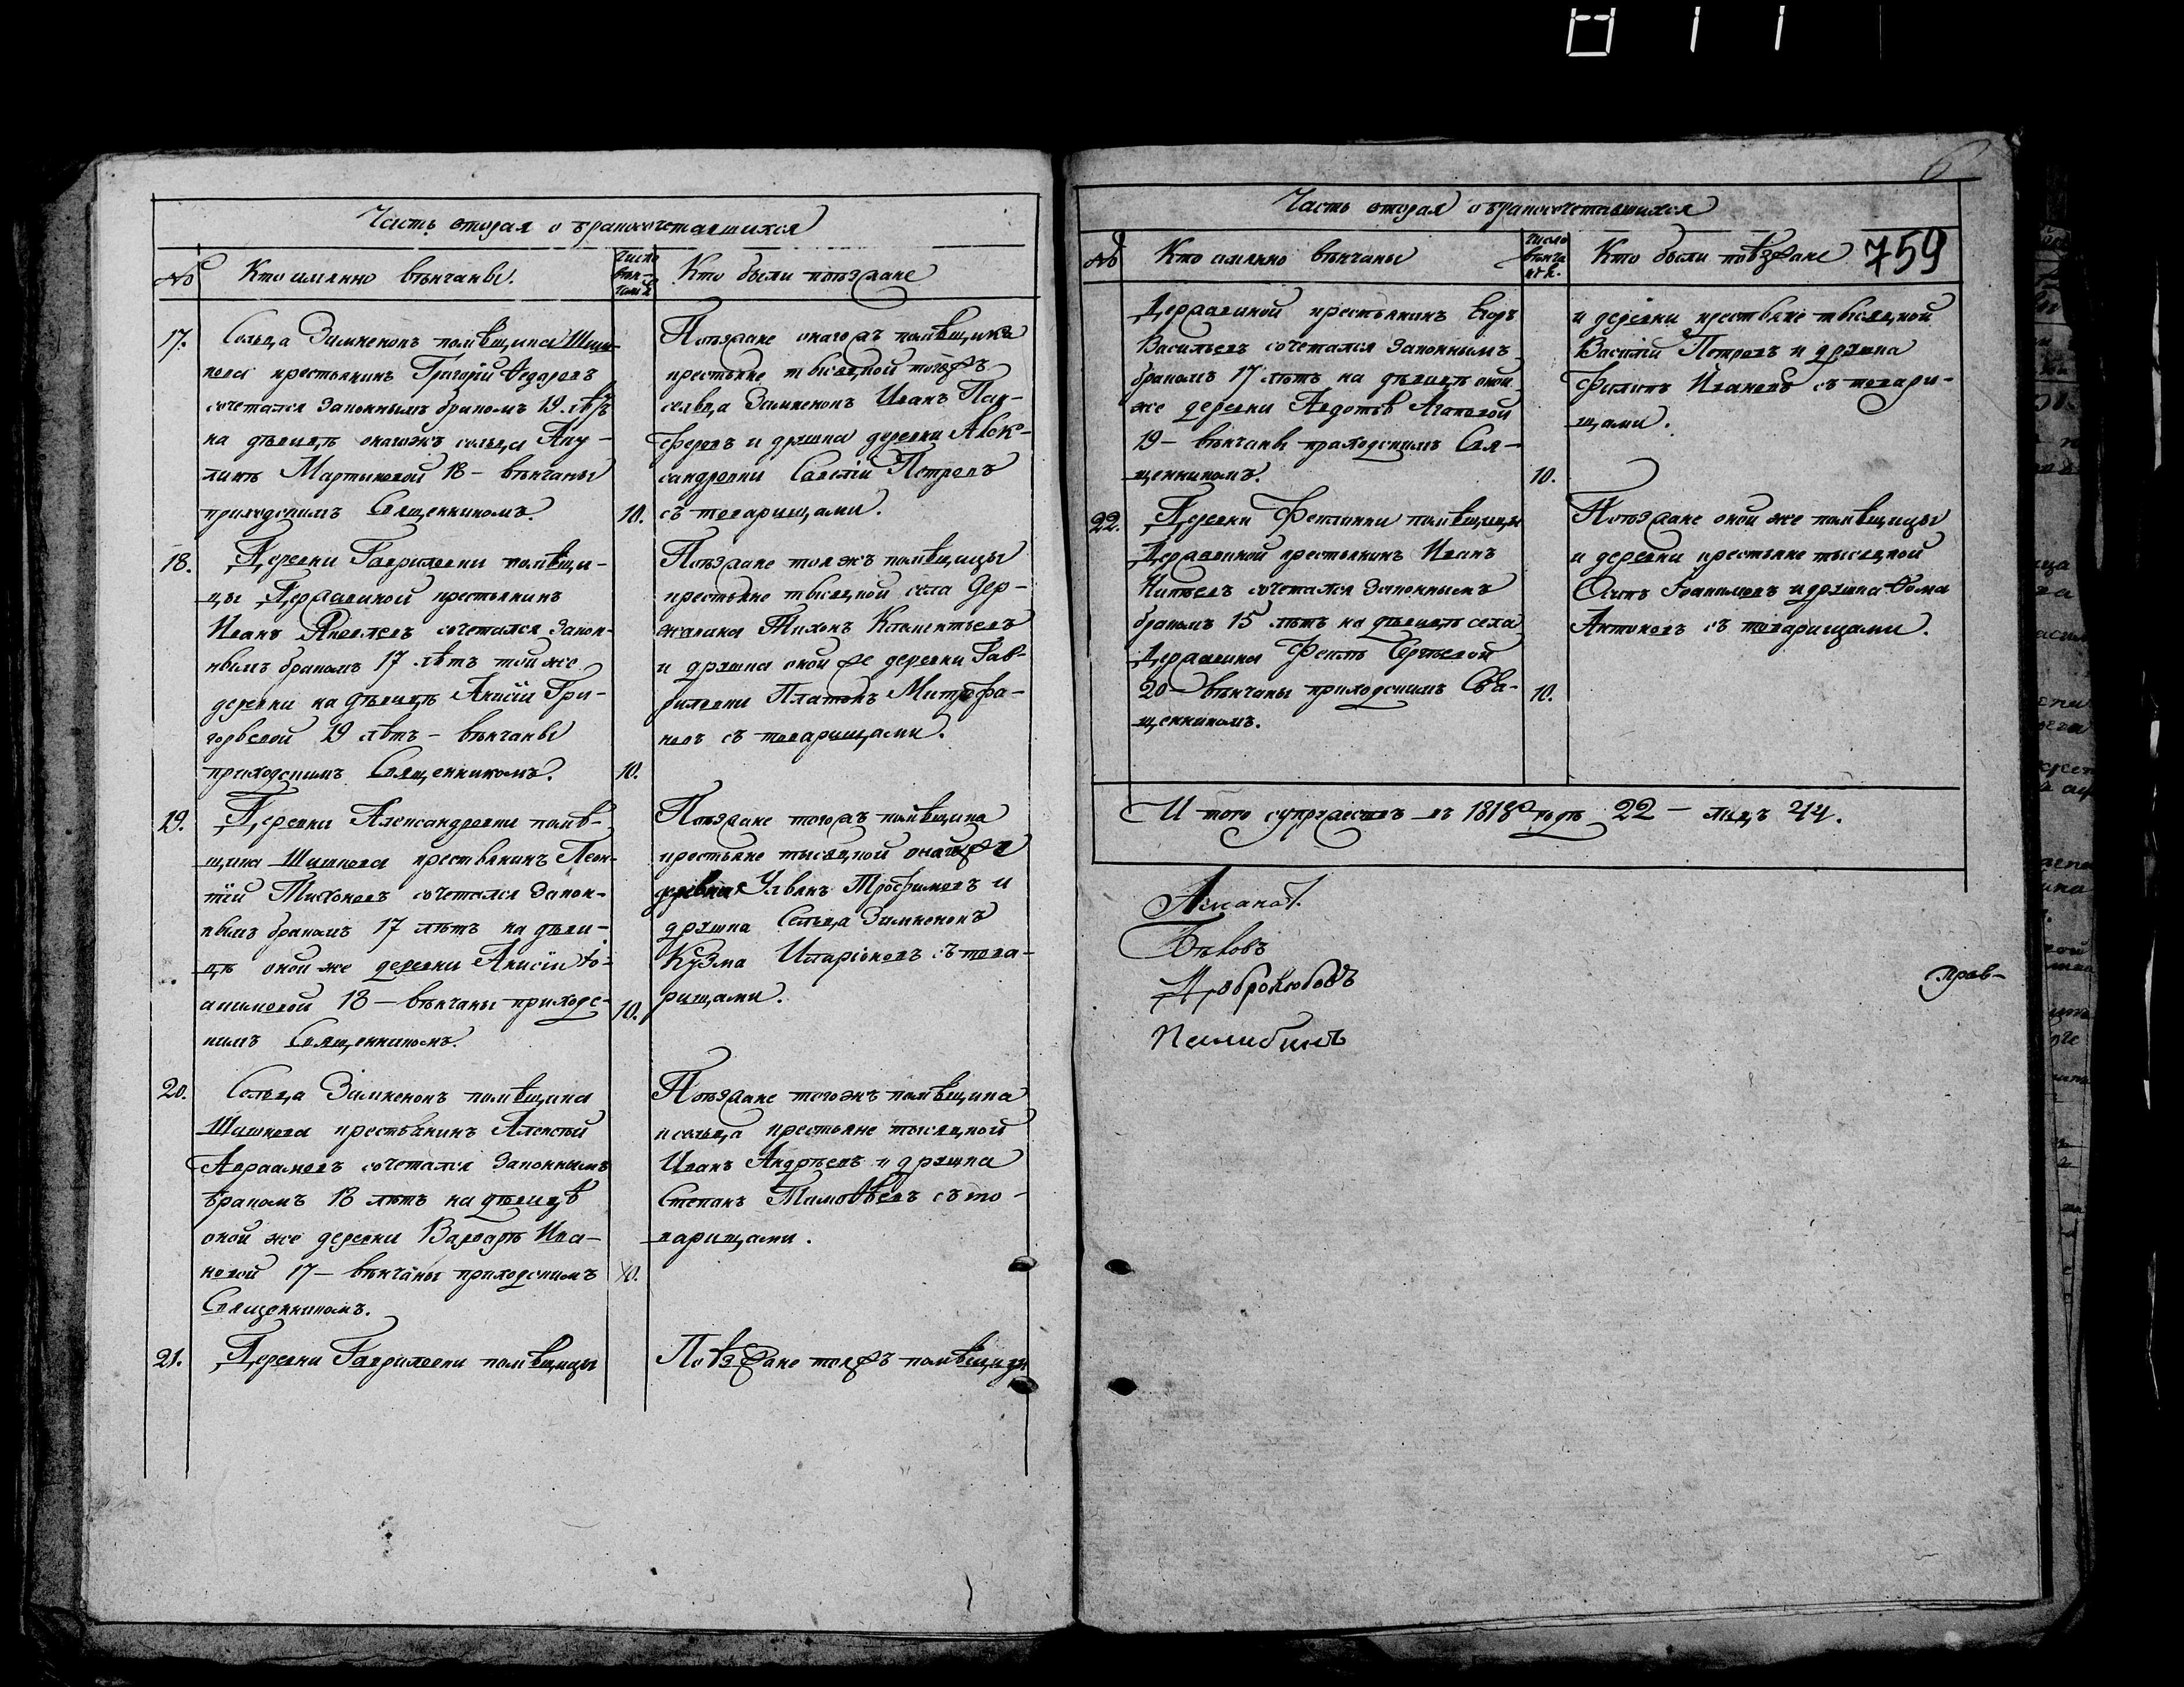 Часть вторая о бракосочетавшихся
№
Кто именно вѣнчаны.
число
вѣн-
чаній
Кто были поѣзжане
17.
Сельца Зимненокъ помѣщика Шиш-
кова крестьянинъ Григорій Ѳедоровъ
сочетался законнымъ бракомъ 19. лѣтъ
на дѣвицѣ онагожъ сельца Аку-
линѣ Мартыновой 18 – вѣнчаны
приходскимъ Священникомъ.
10.
Поѣзжане онагожъ помѣщика
крестьяне тысяцкой тогожъ
сельца Зимненокъ Иванъ Пан-
феровъ и дружка деревни Алек-
сандровки Савелій Петровъ
съ товарищами.
18.
Деревни Гавриловки помѣщи-
цы Державиной крестьянинъ
Иванъ Яковлевъ сочетался закон-
нымъ бракомъ 17 лѣтъ той же
деревни на дѣвицѣ Анисіи Гри-
горьевой 19 лѣтъ – вѣнчаны
приходскимъ Священникомъ.
10.
Поѣзжане тояжъ помѣщицы
крестьяне тысяцкой села Дер-
жавина Тихонъ Климентьевъ
и дружка оной же деревни Гав-
риловки Платонъ Митрофа-
новъ съ товарищами.
19.
Деревни Александровки помѣ-
щика Шишкова крестьянинъ Леон-
тій Тихоновъ сочетался закон-
нымъ бракомъ 17 лѣтъ на дѣви-
цѣ оной же деревни Анисіи Іо-
акимовой 18 – вѣнчаны приходс-
кимъ Священникомъ.
10.
Поѣзжане тогожъ помѣщика
крестьяне тысяцкой онагоже
Ульянъ Трофимовъ и
дружка Сельца Зимненокъ
Кузма Иларіоновъ съ това-
рищами.
20.
Сельца Зимненокъ помѣщика
Шишкова крестьянинъ Алексѣй
Авраамовъ сочетался законнымъ
бракомъ 18 лѣтъ на дѣвицѣ
оной же деревни Варварѣ Ива-
новой 17 – вѣнчаны приходскимъ
Священникомъ.
10.
Поѣзжане тогожъ помѣщика
и сельца крестьяне тысяцкой
Иванъ Андрѣевъ и дружка
Степанъ Тимоѳѣевъ съ то-
варищами.
21.
Деревни Гавриловки помѣщицы
Поѣзжане тояжъ помѣщицы
6
Часть вторая о бракосочетавшихся
№
Кто именно вѣнчаны
число
вѣнча
ній.
Кто были поѣзжане
759
Державиной крестьянинъ Егоръ
Васильевъ сочетался законнымъ
бракомъ 17 лѣтъ на дѣвицѣ оной
же деревни Авдотьѣ Агаповой
19 – вѣнчаны приходскимъ Свя-
щенникомъ.
10.
и деревни крестьяне тысяцкой
Василій Петровъ и дружка
Филипъ Ивановъ съ товари-
щами.
22.
Деревни помѣщицы
Державиной крестьянинъ Иванъ
сочетался законнымъ
бракомъ 15 лѣтъ на дѣвицѣ села
Державина Сергѣевой
20 – вѣнчаны приходскимъ Свя-
щенникомъ.
10.
Поѣзжане оной же помѣщицы
и деревни крестьяне тысяцкой
Осипъ Іоакимовъ и дружка Ѳома
Антоновъ съ товарищами.
И того супружествъ въ 1818 годѣ 22 – лицъ 44.
Бѣловъ
Добролюбовъ